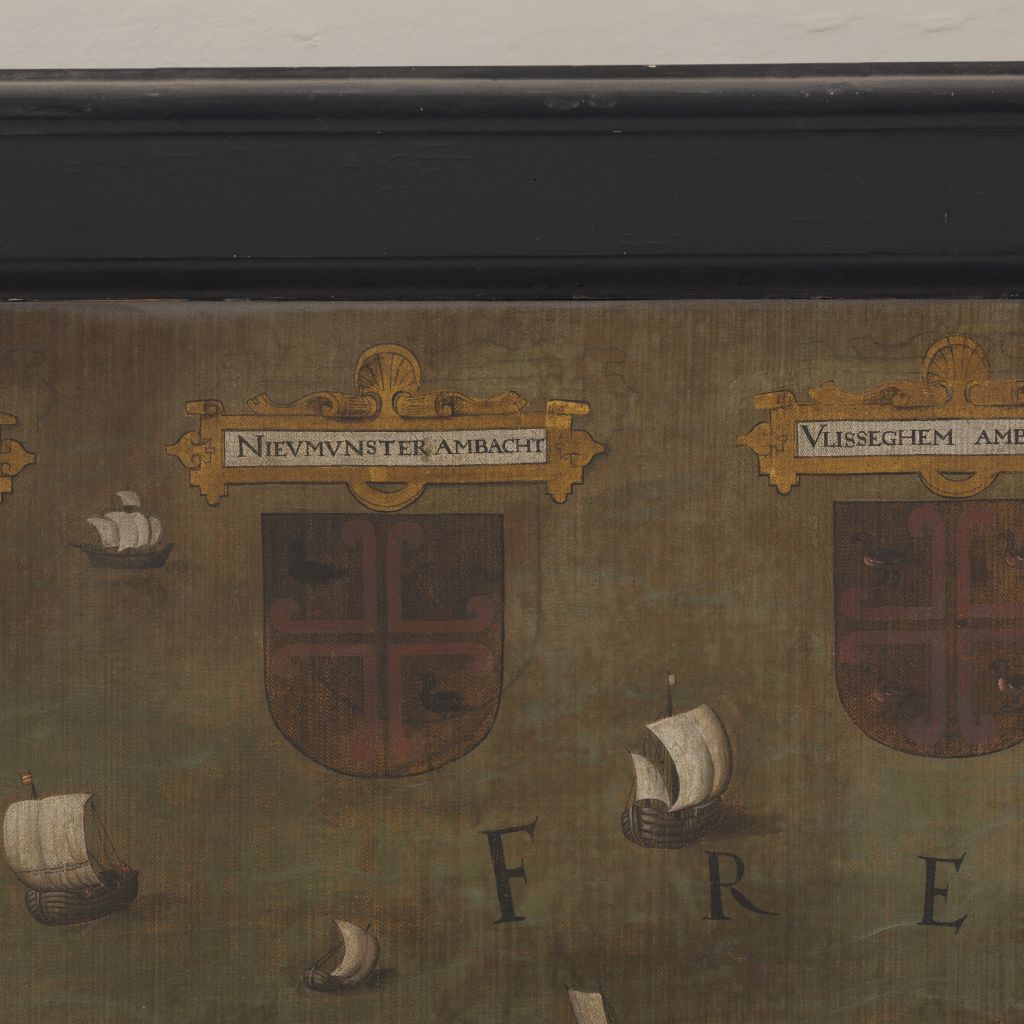 NIEVMVNSTER AMBACHT
VLISSEGHEM AMB
F R E